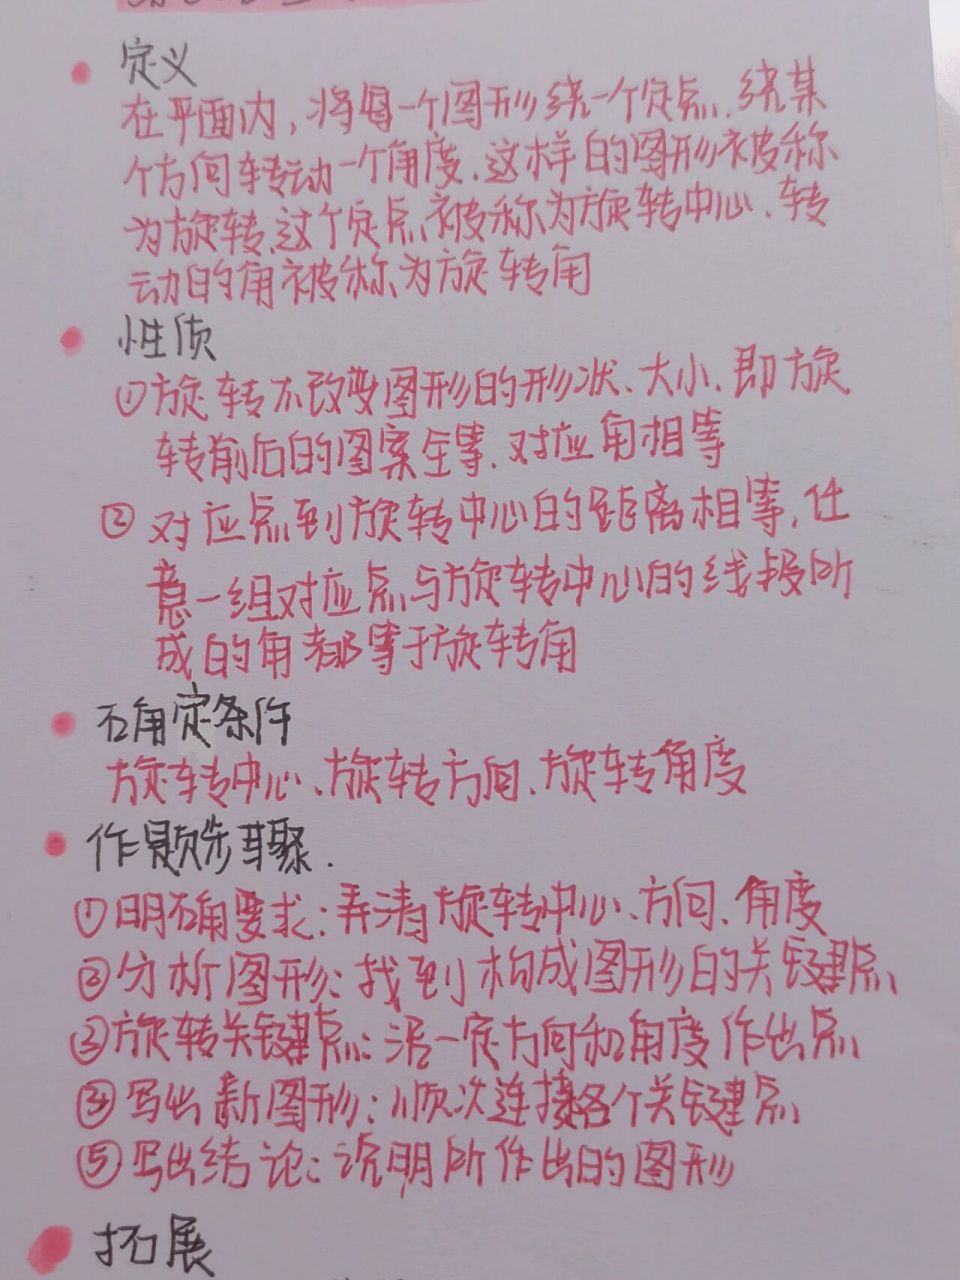 定义
在平面内,将每一个图形绕一个定点.绕某
个方向转动一个角度.这样的图形被称
为旋转.这个定点被称为旋转中心、转
动的角被称为旋转角
性质
①旋转不改变图形的形状、大小.即旋
转前后的图案全等.对应角相等
②对应点到旋转中心的距离相等,任
意一组对应点与旋转中心的线段所
成的角都等于旋转角
确定条件
旋转中心、旋转方向、旋转角度
作题步骤.
①明确要求:弄清旋转中心、方向、角度
②分析图形:找到构成图形的关键点
③旋转关键点:沿一定方向和角度作出点
④写出新图形:顺次连接各个关键点
⑤写出结论:说明所作出的图形
拓展